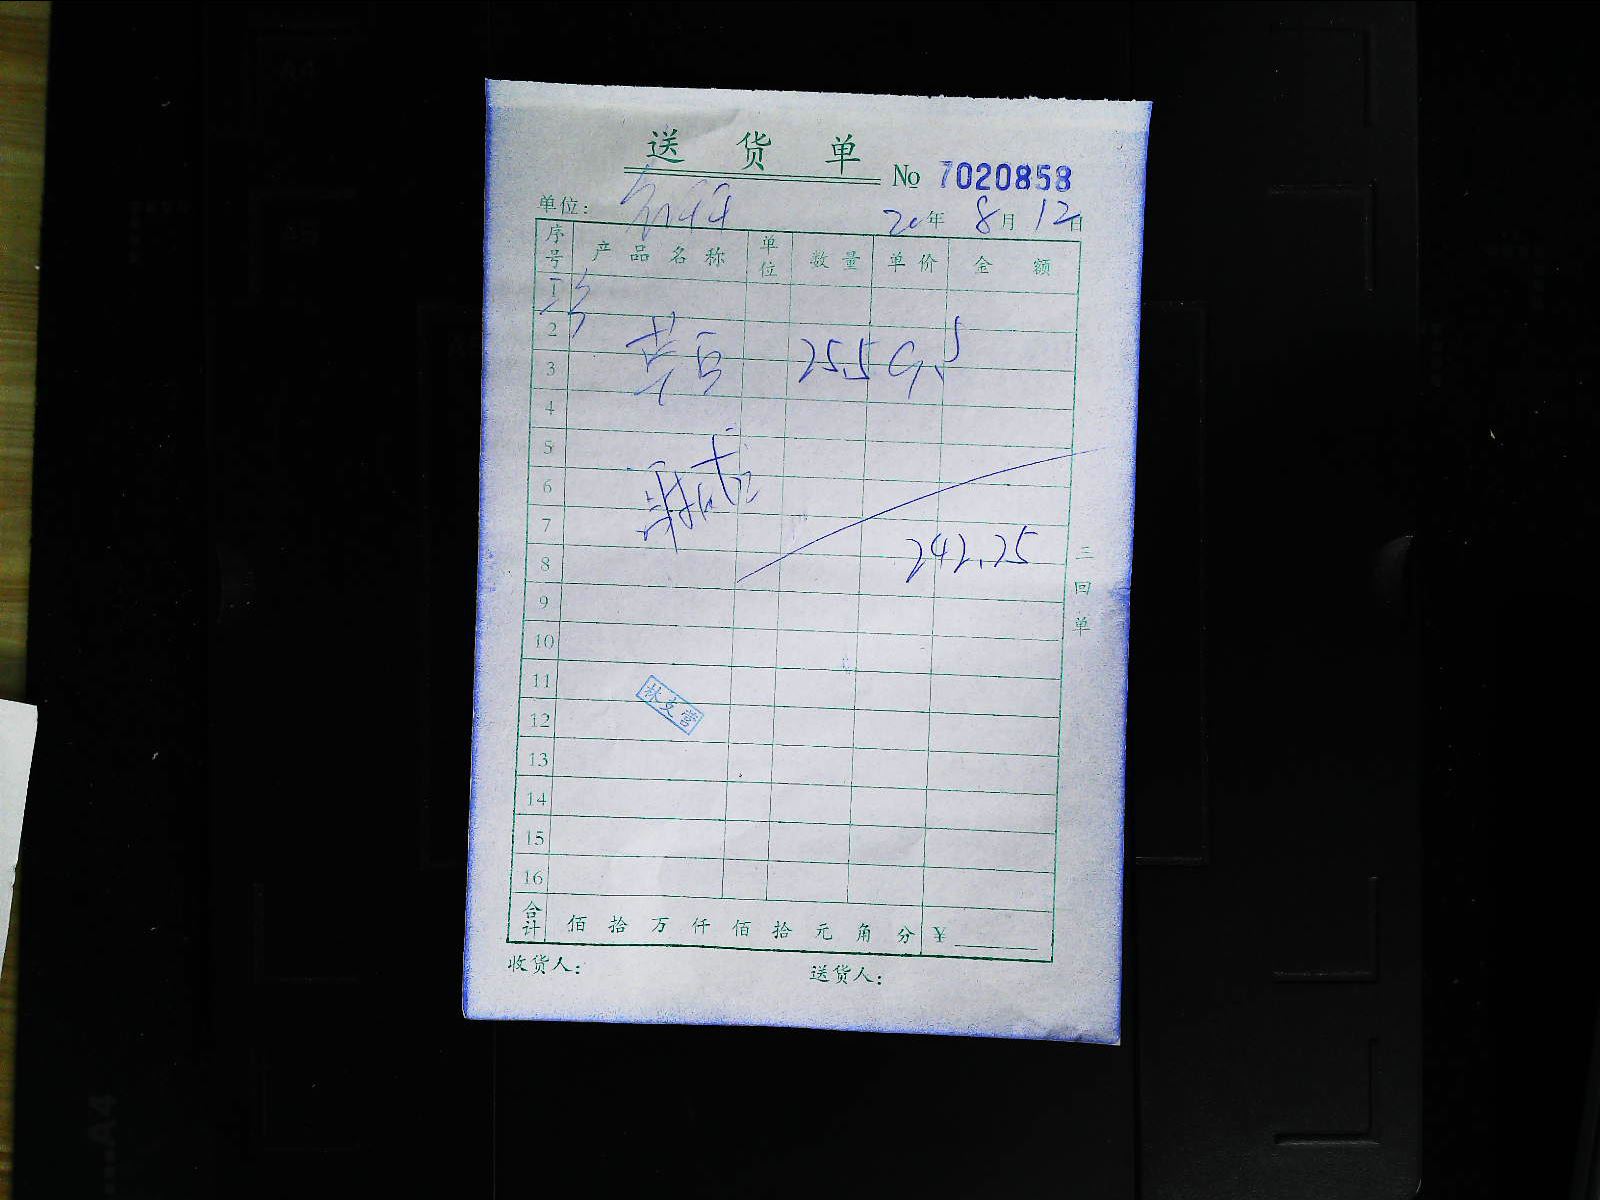 送货单
No 7020858
单位:
20年 8月 12日
序号 产品名称 单位 数量 单价 金额
1
2
黄豆 25.5 9.5
3
4
5
6
7
242.25
8
9
10
11
林文营
12
13
14
15
16
合计 佰 拾 万 仟 佰 拾 元 角 分 ¥
收货人: 送货人:
三回单